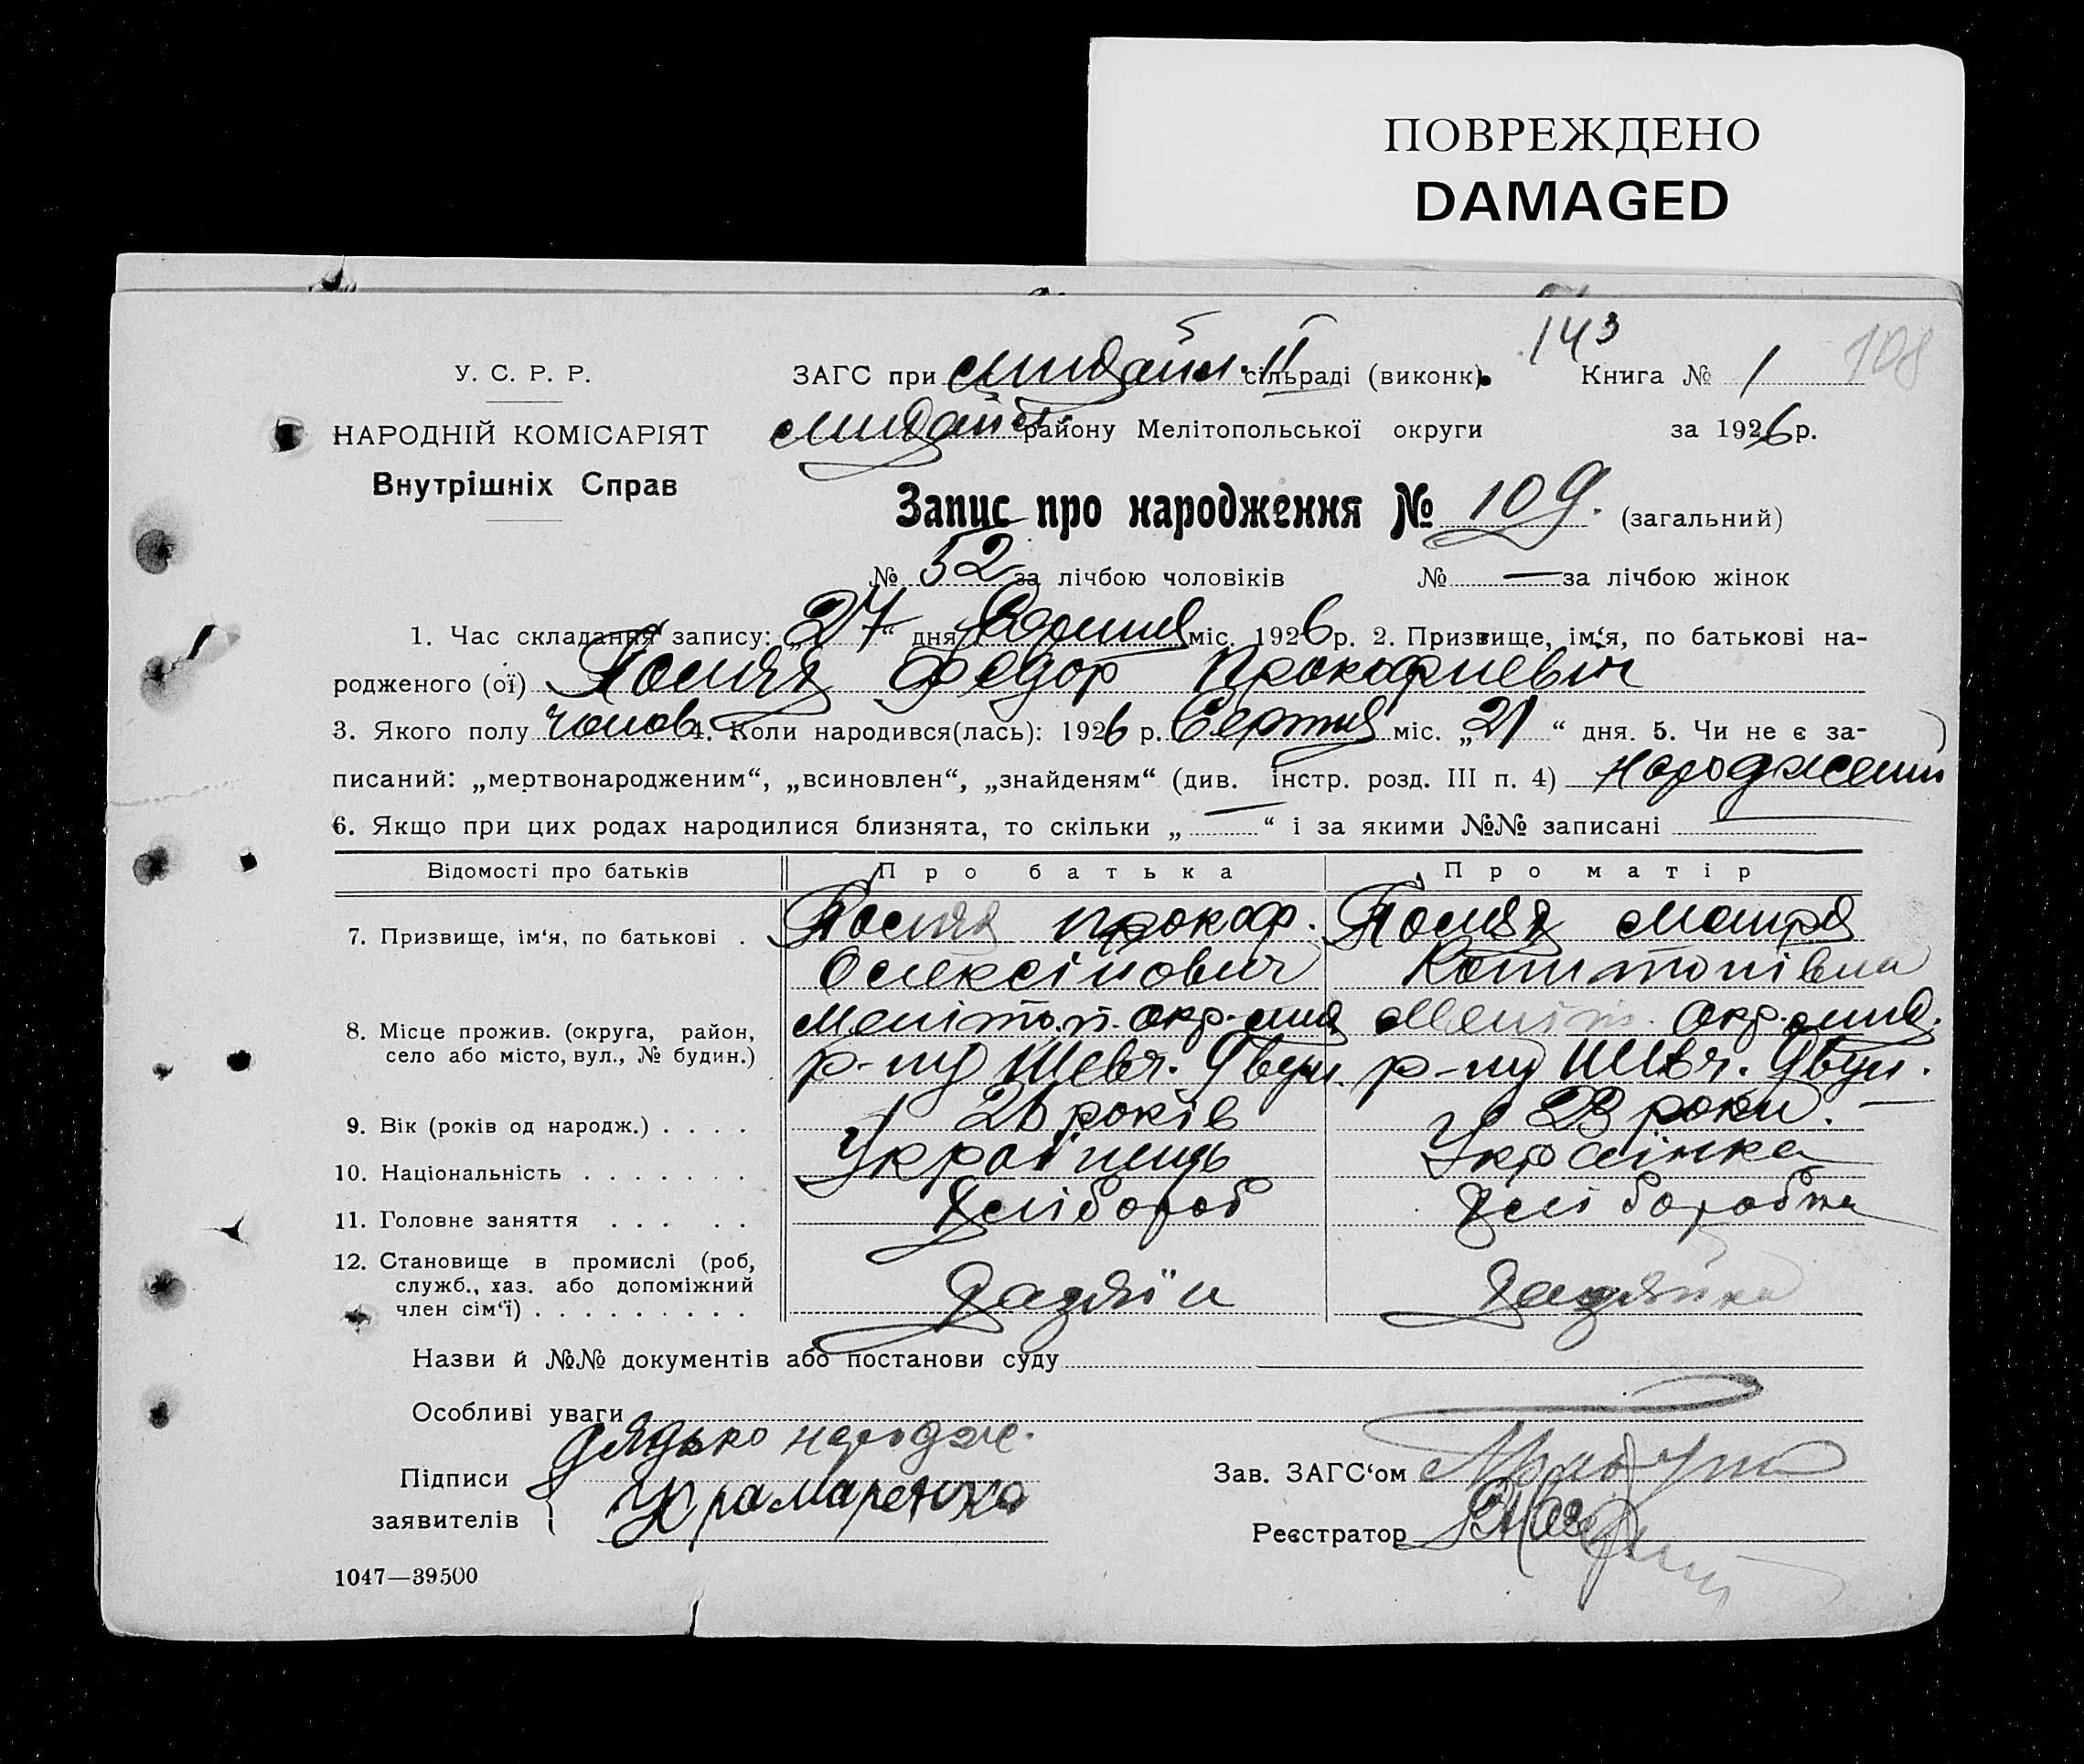 ПОВРЕЖДЕНО
DAMAGED
143
108
У. С. Р. Р.
ЗАГС при Михайл. ІІ сільраді (виконк). Книга № 1
НАРОДНІЙ КОМІСАРІЯТ
Михайл. району Мелітопольської округи за 1926 р.
Внутрішніх Справ
Запис про народження № 109. (загальний)
№ 52 за лічбою чоловіків № — за лічбою жінок
1. Час складання запису: „27“ дня Серпня міс. 1926 р. 2. Призвище, ім‘я, по батькові на-
родженого (ої) Федор Прокофиевич
3. Якого полу чолов. 4. Коли народився(лась): 1926 р. Серпня міс. „21“ дня. 5. Чи не є за-
писаний: „мертвонародженим“, „всиновлен“, „знайденям“ (див. інстр. розд. III п. 4) Народжений
6. Якщо при цих родах народилися близнята, то скільки „—“ і за якими №№ записані
Відомості про батьків Про батька Про матір
7. Призвище, ім‘я, по батькові . Прокоф. Мотря
Олексійович
8. Місце прожив. (округа, район, Мелітоп. окр. Мих. Меліт. окр. Мих.
село або місто, вул., № будин.) р-ну Шевч. р-ну Шевч.
9. Вік (років од народж.) . . . . 26 років 23 роки. —
10. Національність . . . . . . . Українець Українка
11. Головне заняття . . . . . Хлібороб Хліборобка
12. Становище в промислі (роб,
служб., хаз. або допоміжний Хазяїн Хазяйка
член сім‘ї) . . . . . . . . .
Назви й №№ документів або постанови суду
Особливі уваги
дядько народж.
Підписи Зав. ЗАГС‘ом
заявителів } Крамаренко
Реєстратор
1047—39500